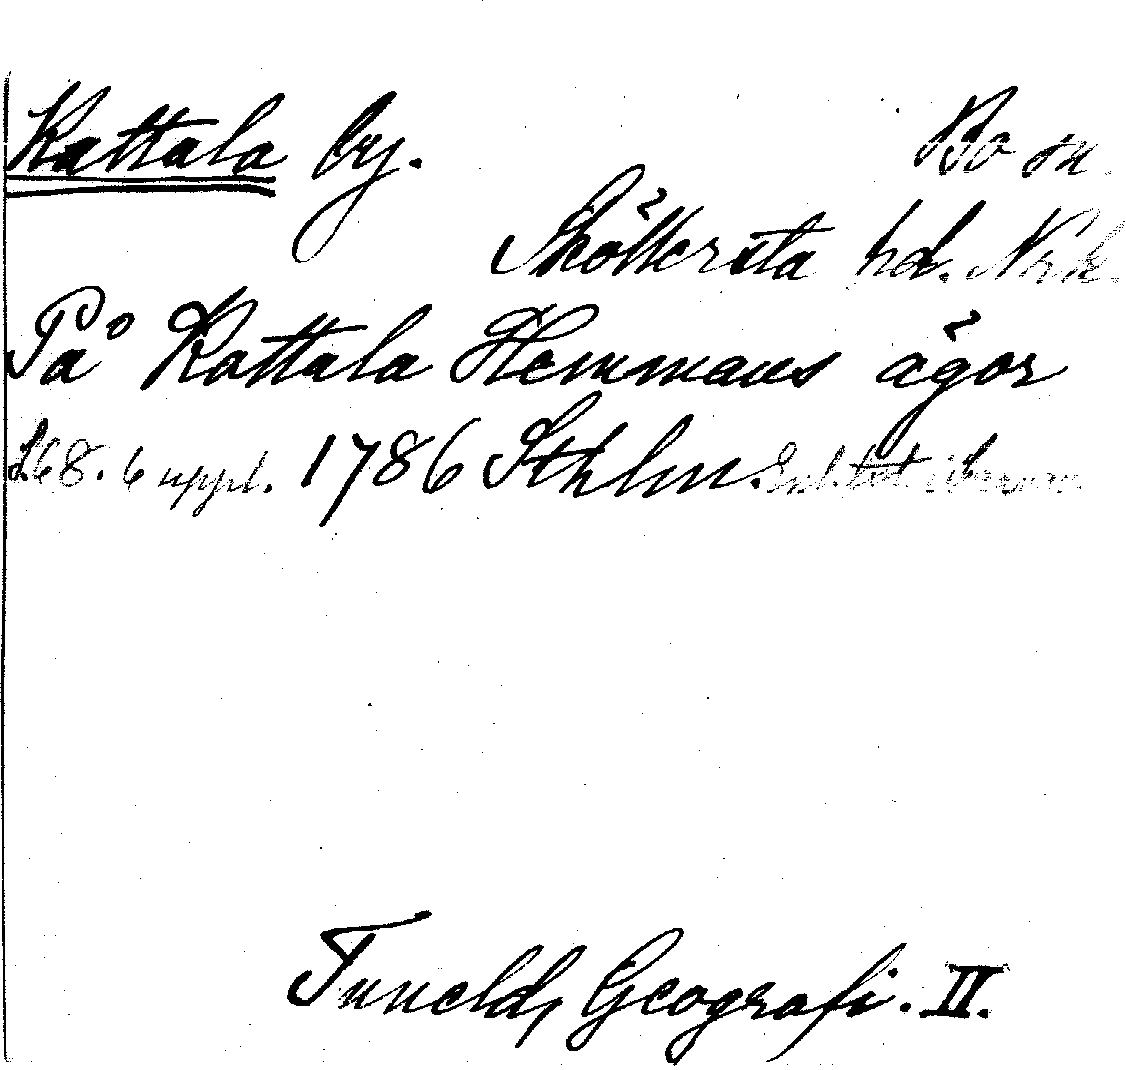 Kattala by. Bo sn.
Sköllersta hd. Nrk.
På Kattala Hemmans ägor
268. 6 uppl. 1786 Sthlm.
Tuneld, Geografi. II.